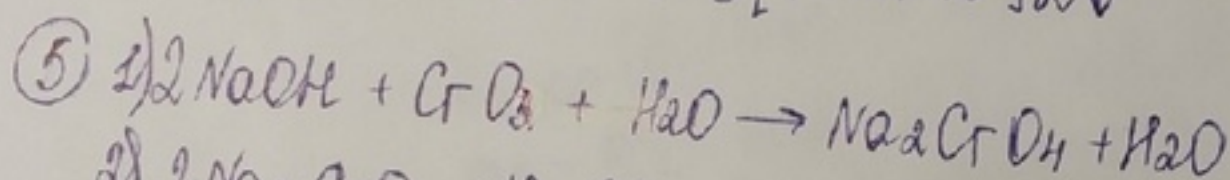 ⑤ 1) 2 NaOH + CrO₃ + H₂O → Na₂CrO₄ + H₂O